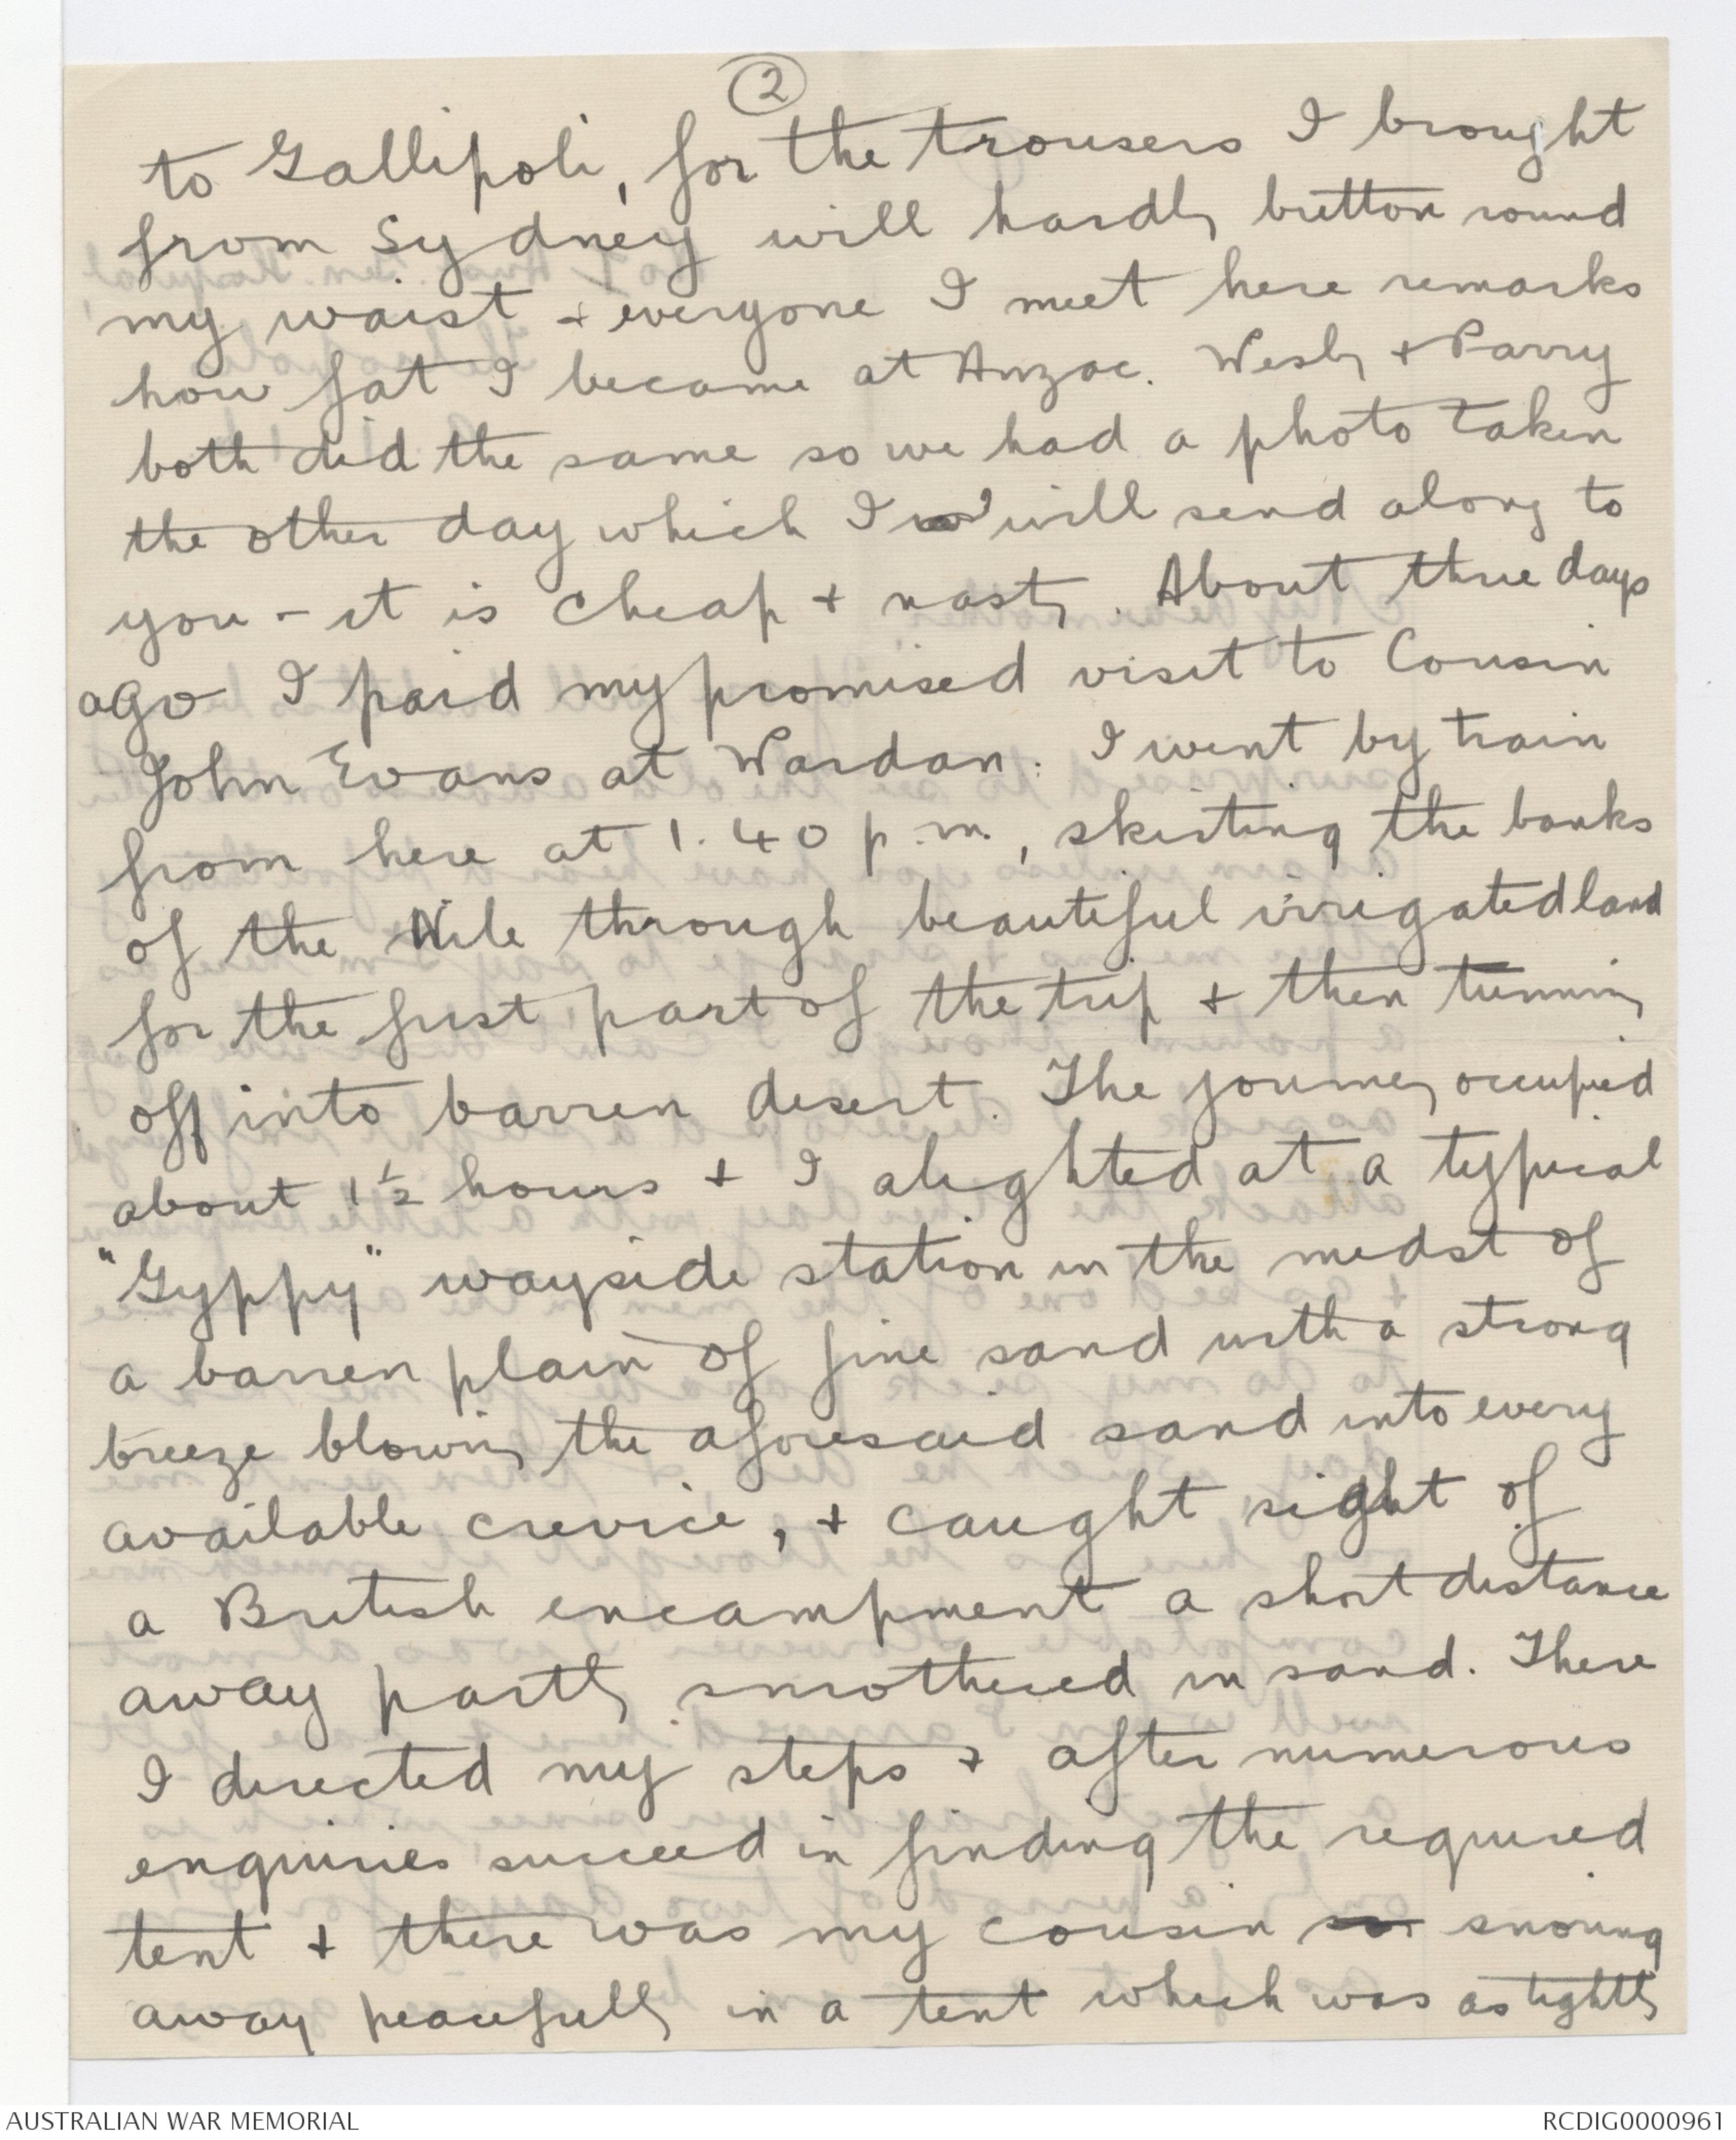 2
to Gallipoli, for the trousers I brought
from Sydney will hardly button round
my waist + everyone I meet here remarks
how fat I became at Anzac. Wesly + Parry
both did the same so we had a photo taken
the other day which I will send along to
you - it is cheap + nasty. About three days
ago I paid my promised visit to Cousin
John Evans at Wardan. I went by train
from here at 1.40 p.m., skirting the banks
of the Nile through beautiful irrigated land
for the first part of the trip + then turning
off into barren desert. The journey occupied
about 1½ hours + I alighted at a typical
"Gyppy" wayside station in the midst of
a barren plain of fine sand with a strong
breeze blowing the aforesaid sand into every
available crevice, + caught sight of
a British encampment a short distance
away partly smothered in sand. There
I directed my steps + after numerous
enquiries succeed in finding the required
tent + there was my cousin snoring
away peacefully in a tent which was as tightly
AUSTRALIAN WAR MEMORIAL
RCDIG0000961